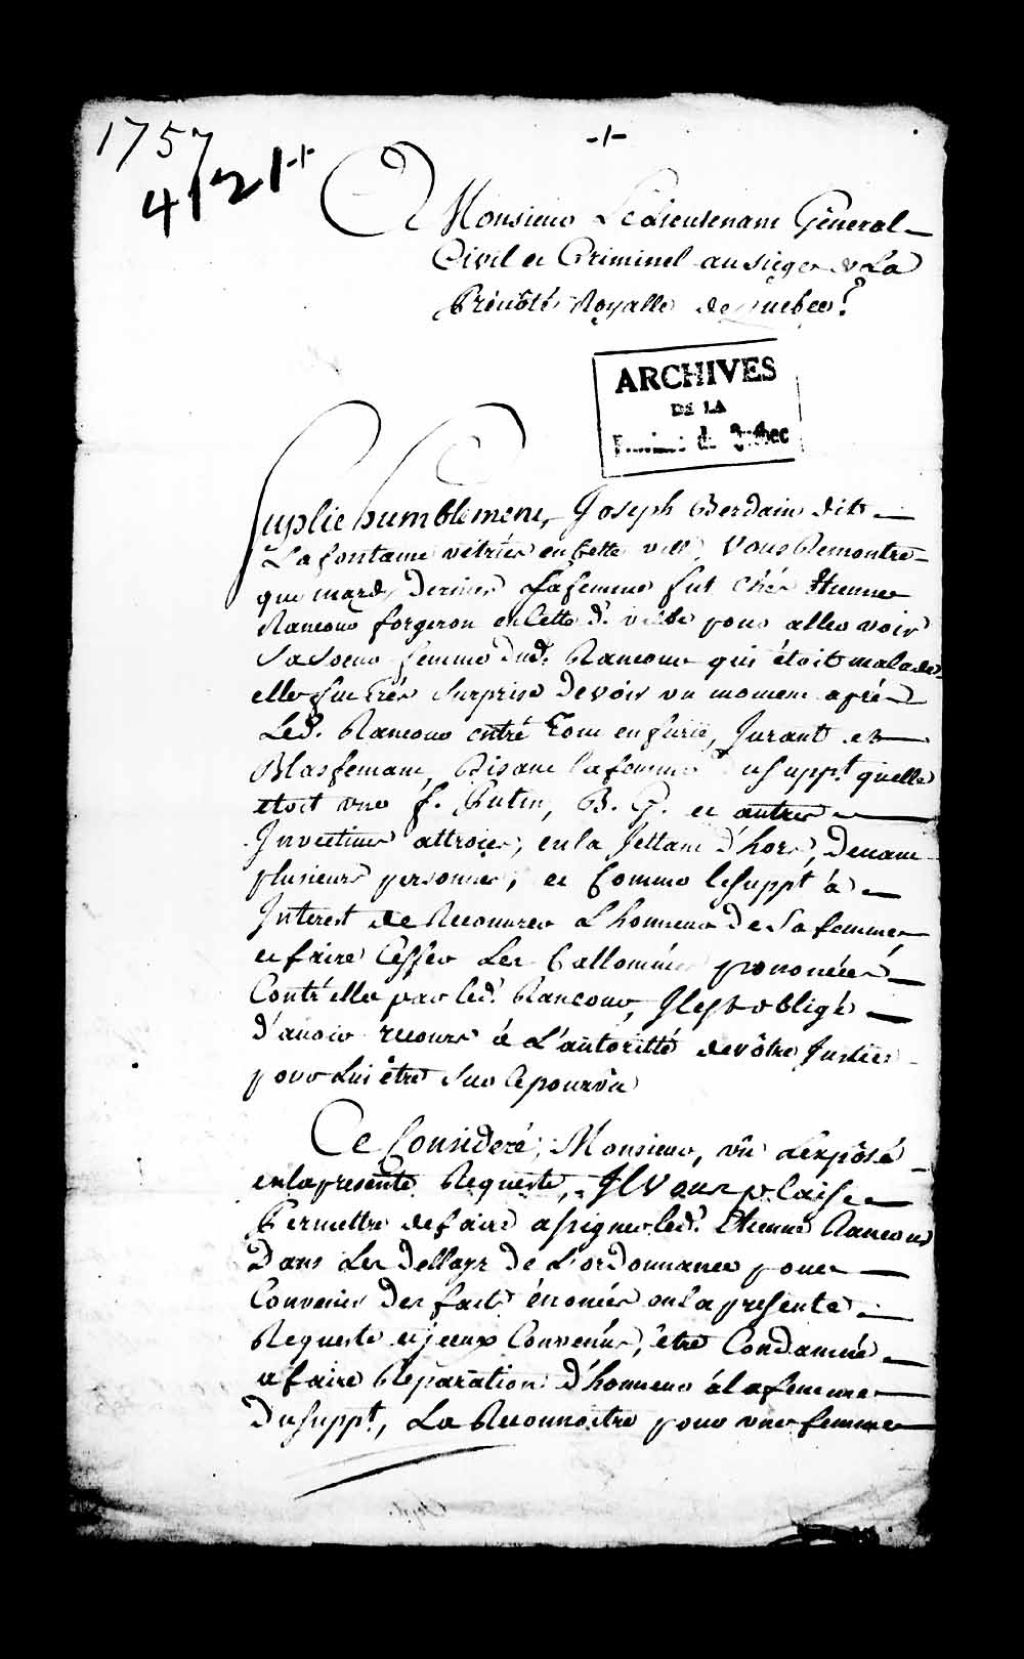 1757
4121+
-/-
A Monsieur Le Lieutenant Géneral
Civil et Criminel au siege de La
Prévôté Royalle de Quebec
ARCHIVES
DE LA
Province de Québec
Suplie humblement, Joseph Berdain dit
La fontaine vitrier en Cette ville, Vous Remontre
que mardy dernier Sa femme fut chés Etienne
Rancour forgeron en Cette de. ville pour aller voir
Sa Soeur femme dud. Rancour qui étoit malade
elle fut trés Surprise de voir un moment aprés
Led. Rancour entré tout en furie, Jurant et
Blasfemant, Disant la femme du suppt. quelle
etoit une f. Putin, B. G. et autres
Invectives attroices, en la Jettant d'hors, devant
plusieurs personnes, et Comme le Suppt à
Interest de Recouvrer L'honneur de Sa femme
et faire Cesser Les Callomnies prononcées
Contr'elle par led. Rancour, Il est obligé
d'avoir recours à L'autoritté de vôtre Justice
pour Lui être Sur Ce pourvû
Ce Consideré, Monsieur, vû L'exposé
en la presente Requeste, Il Vous plaise
Permettre de faire assigner led. Etienne Rancour
Dans Les Dellays de L'ordonnance pour
Convenir Des faits énoncés en la presente
Requeste et jceux Convenus, être Condamné
a faire Réparation d'honneur à la femme
Du Suppt, La Reconnoitre pour une femme